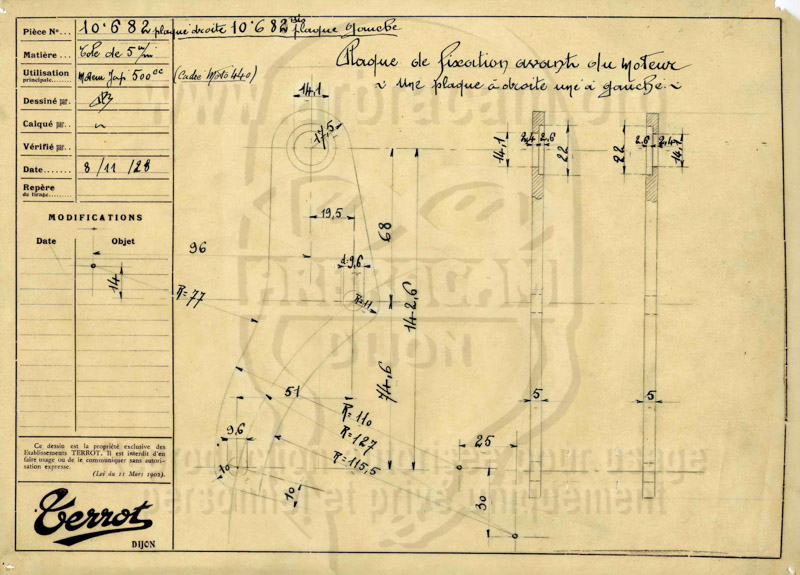 Pièce N°... 10·682 plaque droite 10·682 bis plaque gauche
Matière... Tôle de 5 m/m
Utilisation principale... Moteur Jap 500cc (Cadre Moto 440)
Dessiné par.
Calqué par..
Vérifié par..
Date....... 8/11/28
Repère du tirage.......
MODIFICATIONS
Date Objet
Plaque de fixation avant du Moteur
Une plaque à droite une à gauche
14,1
17,5
19,5
96
14
R=77
d=9,6
R=11
68
142,6
74,6
51
R=110
R=127
R=115,5
9,6
10
10
25
30
14,1
2,4 2,6
22
22
2,6 2,4
14,1
5
5
Ce dessin est la propriété exclusive des
Etablissements TERROT. Il est interdit d'en
faire usage ou de le communiquer sans autori-
sation expresse.
(Loi du 11 Mars 1902).
Terrot
DIJON
ARBRACAM
DIJON
personnel et privé uniquement